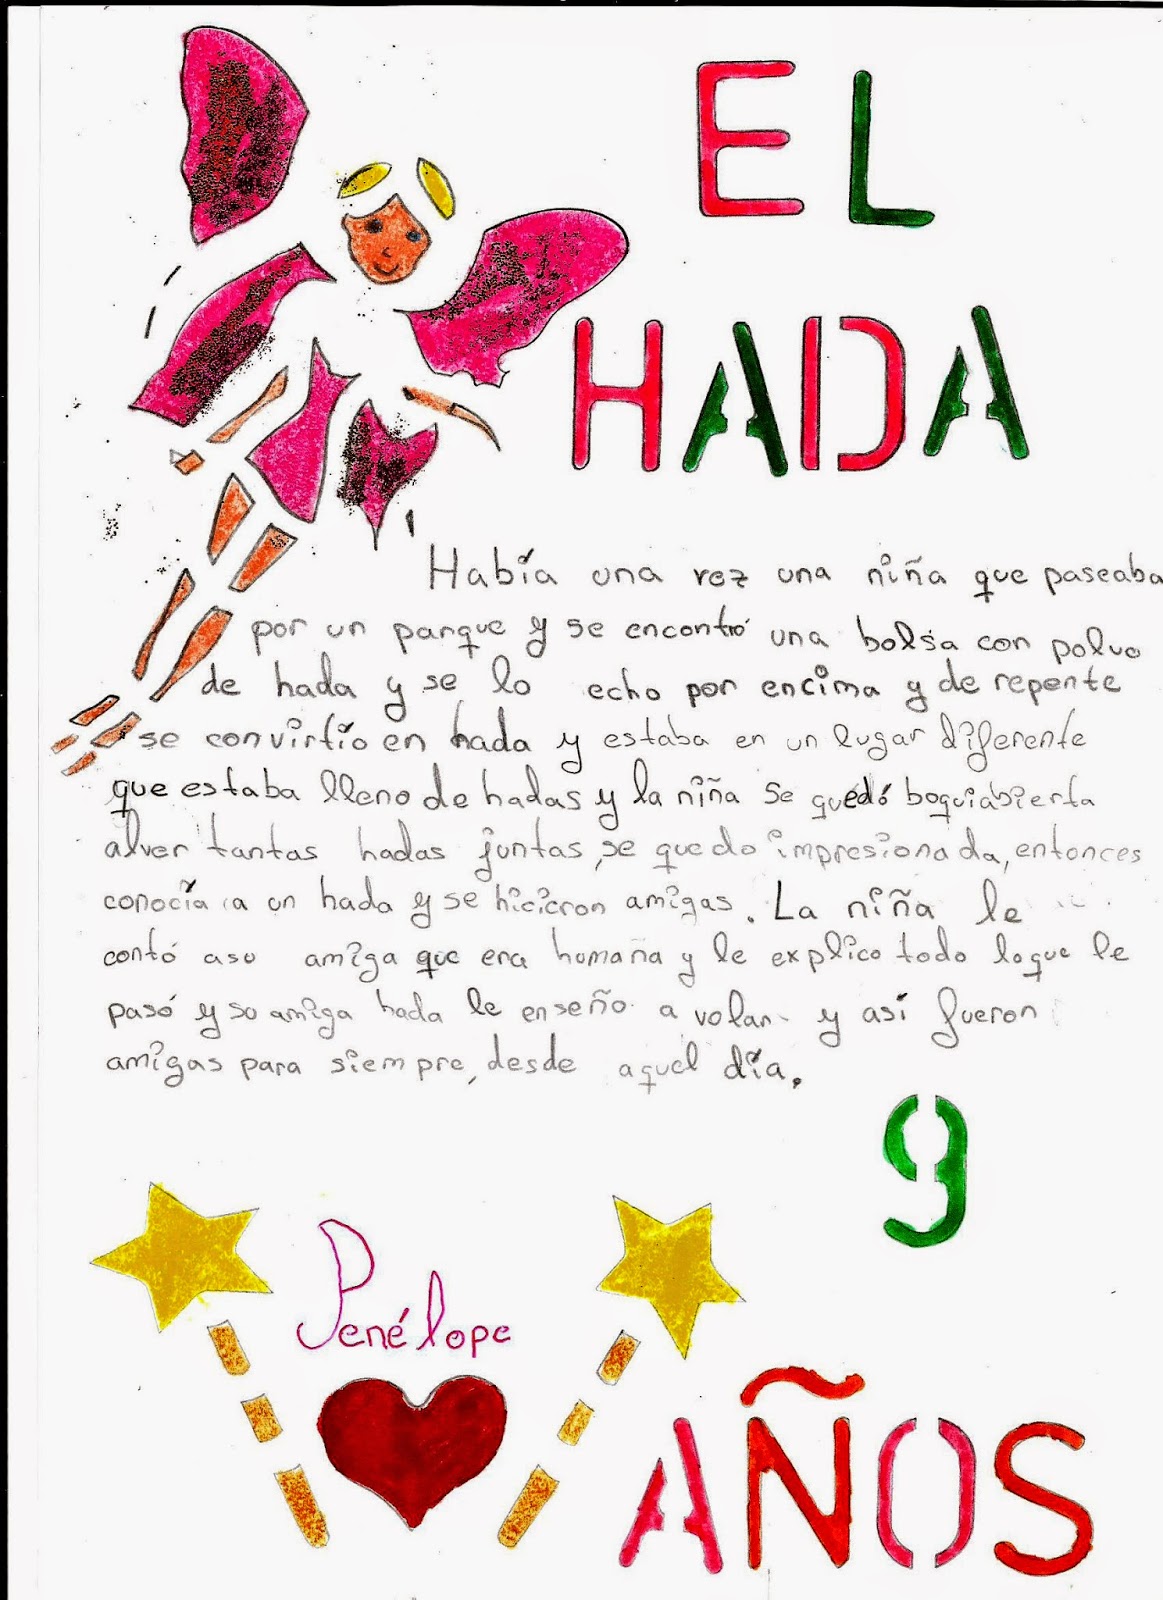 EL
HADA
Había una vez una niña que paseaba
por un parque y se encontró una bolsa con polvo
de hada y se lo echo por encima y de repente
se convirtío en hada y estaba en un lugar diferente
que estaba lleno de hadas y la niña se quedó boquiabierta
alver tantas hadas juntas, se quedo impresionada, entonces
conocía a un hada y se hicieron amigas. La niña le
contó asu amiga que era humaña y le explico todo loque le
pasó y su amiga hada le enseño a volar y así fueron
amigas para siempre, desde aquel día.
9
Penélope
AÑOS